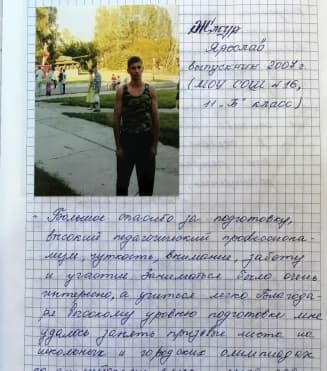 Ярослав
выпускник 2007 г.
(МОУ СОШ №16,
11 „Б" класс)
- Большое спасибо за подготовку,
высокий педагогический профессиона-
лизм, чуткость, внимание, заботу
и участие. Заниматься было очень
интересно, а учиться легко. Благода-
ря высокому уровню подготовки мне
удалось занять призовые места на
школьных и городских олимпиадах